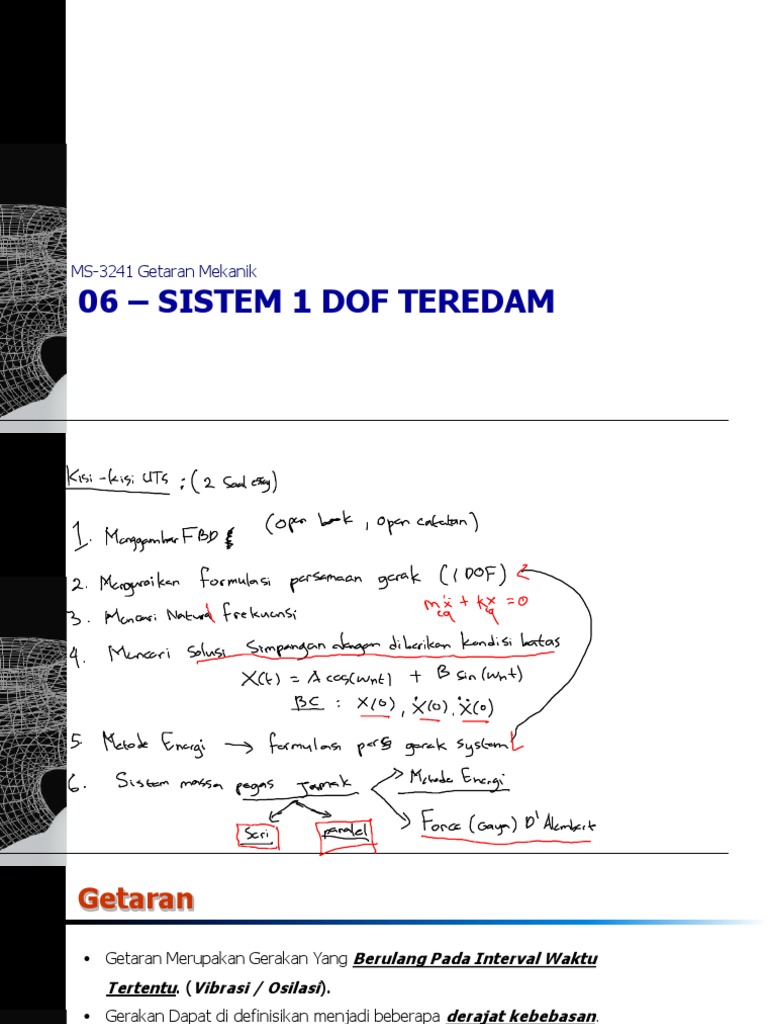 MS-3241 Getaran Mekanik
06 – SISTEM 1 DOF TEREDAM
Kisi-kisi UTS : (2 Soal essay)
1. Menggambar FBD (open book, open catatan)
2. Menguraikan formulasi persamaan gerak (1 DOF)
m ẍ + k x = 0
eq eq
3. Mencari Natural frekuensi
4. Mencari Solusi Simpangan dengan diberikan kondisi batas
X(t) = A cos(wnt) + B sin(wnt)
BC : X(0), Ẋ(0), Ẍ(0)
5. Metode Energi → formulasi pers gerak system
6. Sistem massa pegas Jamak
Metode Energi
Seri
paralel
Force (Gaya) D'Alembert
Getaran
• Getaran Merupakan Gerakan Yang Berulang Pada Interval Waktu
Tertentu. (Vibrasi / Osilasi).
• Gerakan Dapat di definisikan menjadi beberapa derajat kebebasan.